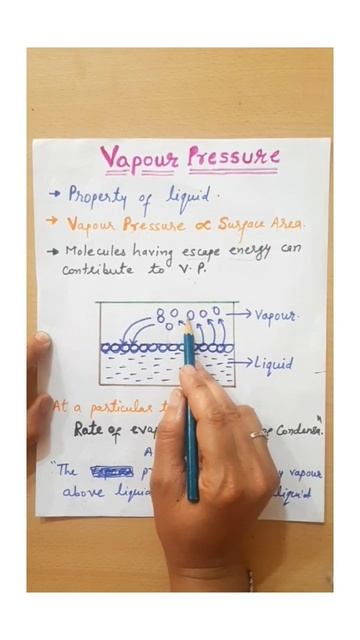 Vapour Pressure
→ Property of liquid.
→ Vapour Pressure ∝ Surface Area.
→ Molecules having escape energy can
contribute to V.P.
→ Vapour.
→ Liquid
At a particular
Rate of Condensn.
"The vapour
above liquid